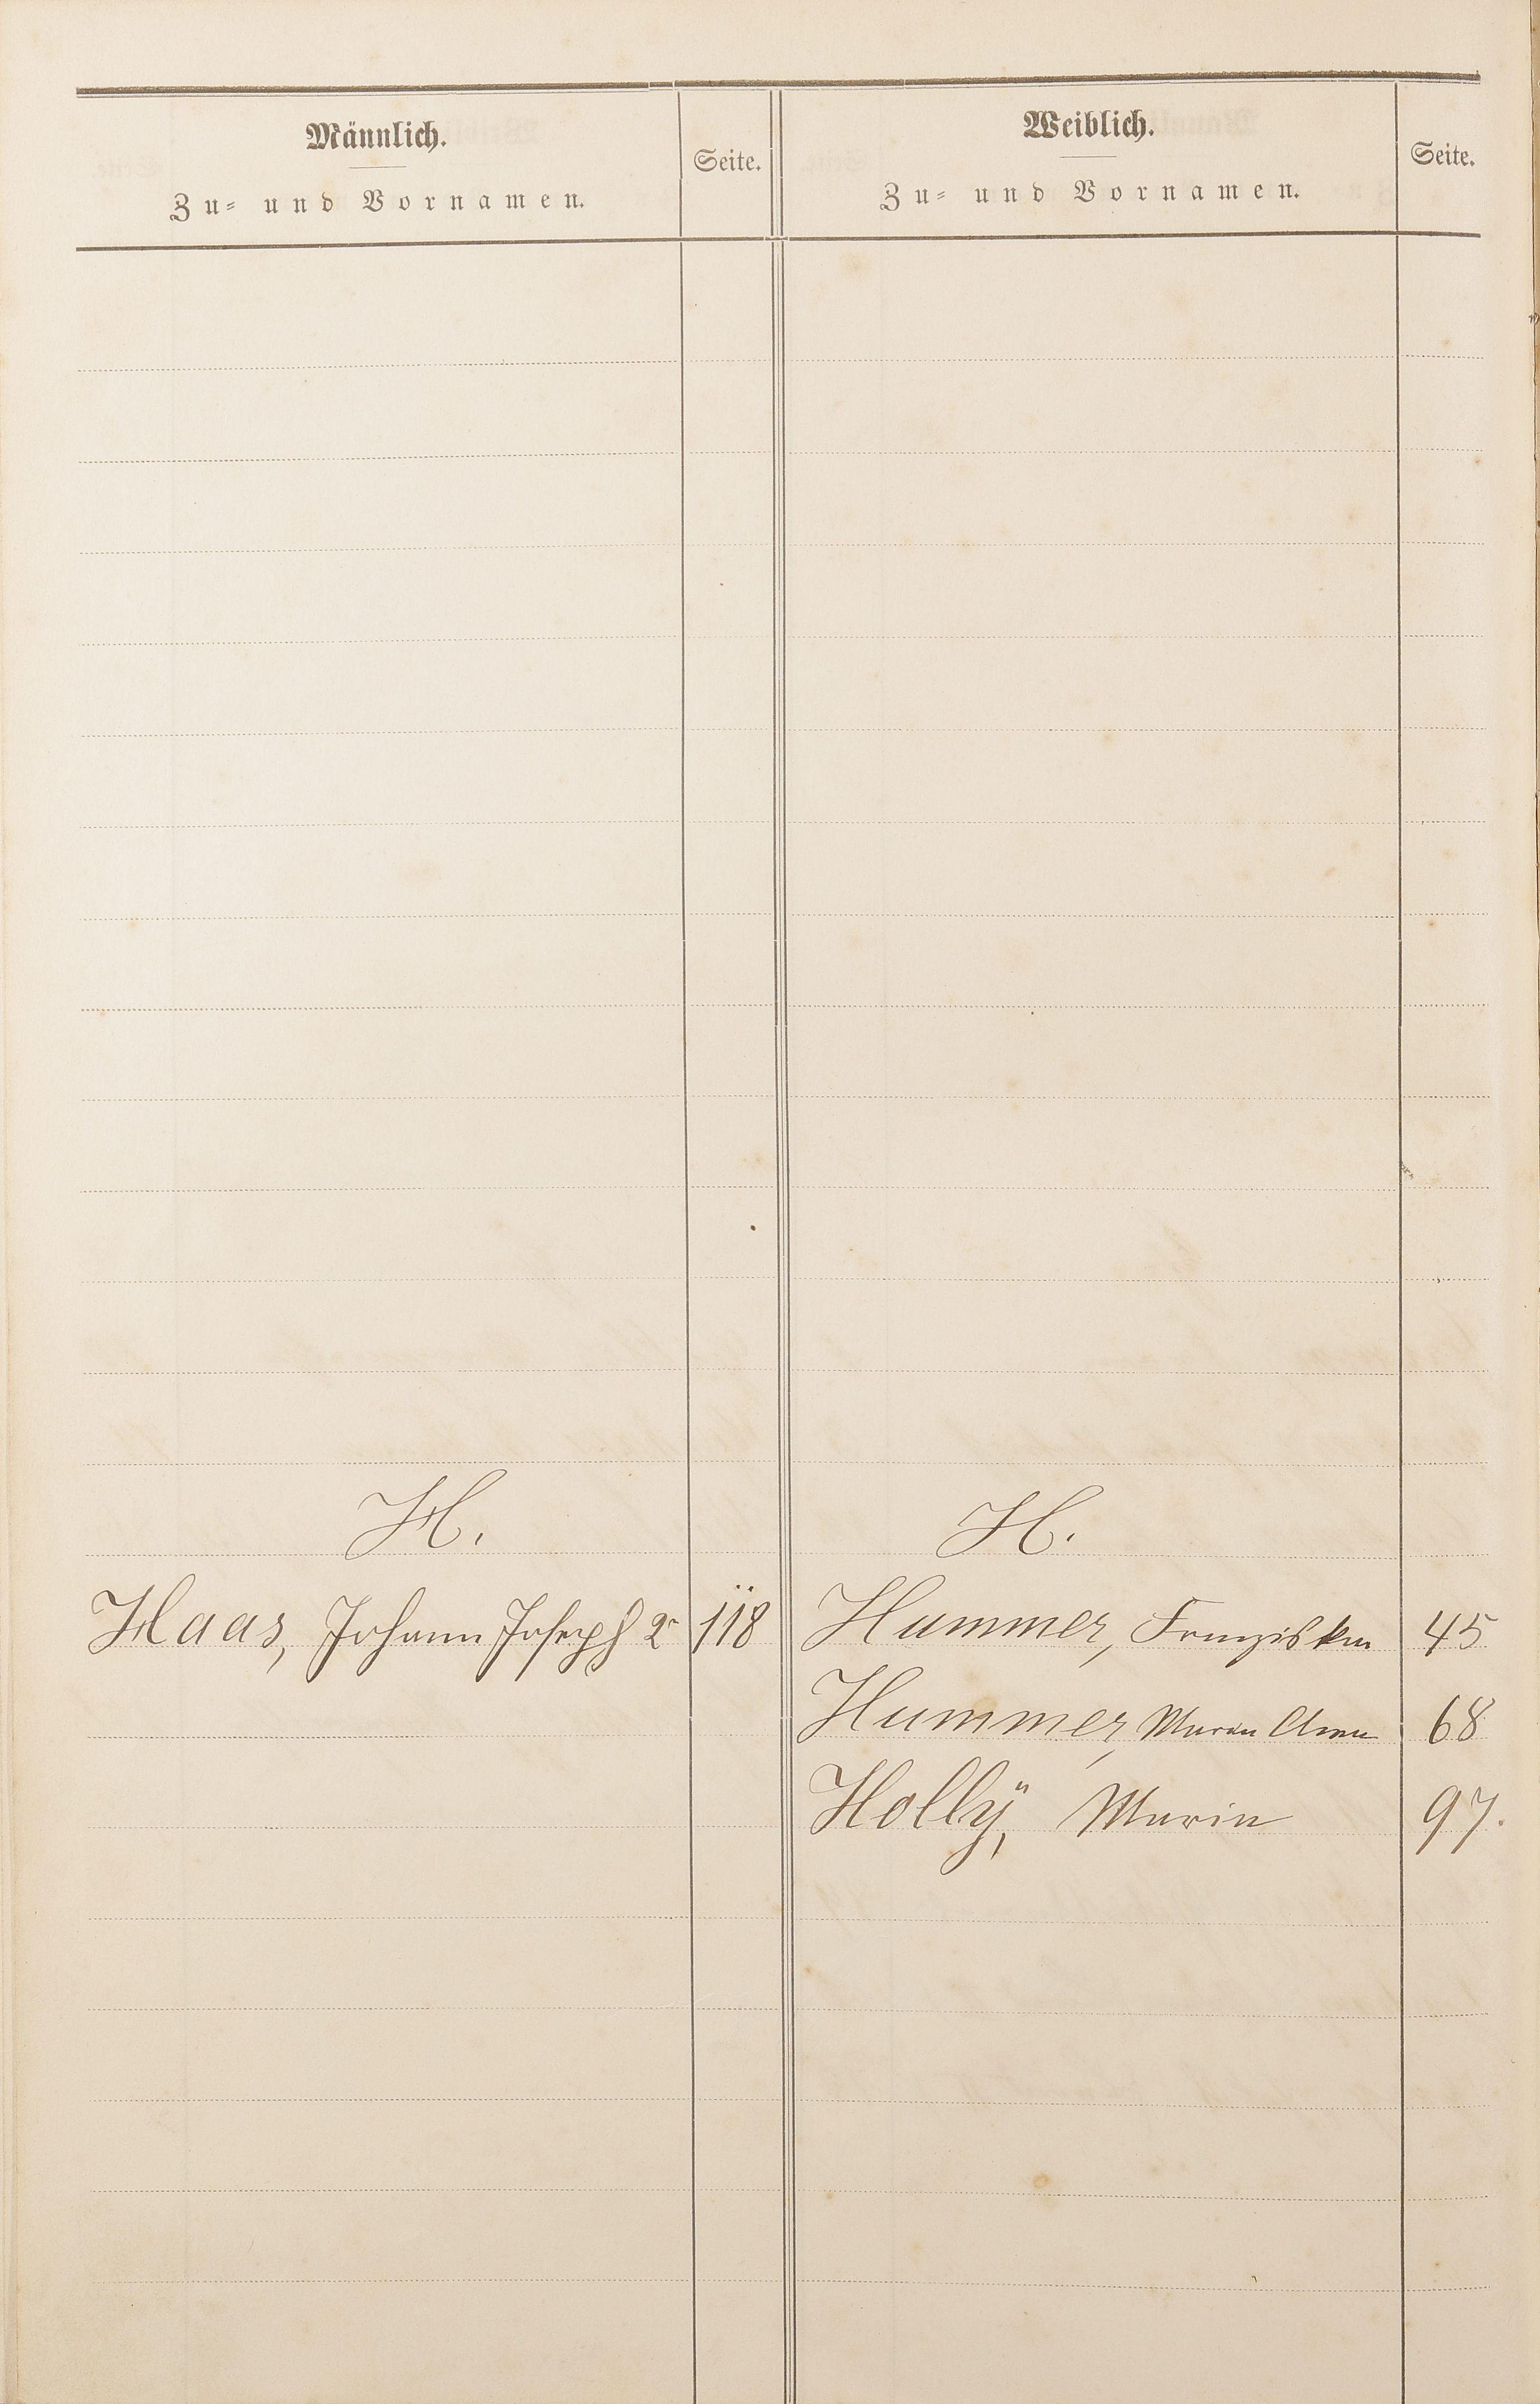 Männlich.
Zu- und Vornamen.
Seite.
Weiblich.
Zu- und Vornamen.
Seite.
H.
H.
Haas, Johann Joseph 2r 118
Hummer, Franziska 45
Hummer, Maria Anna 68
Hollÿ, Maria 97.